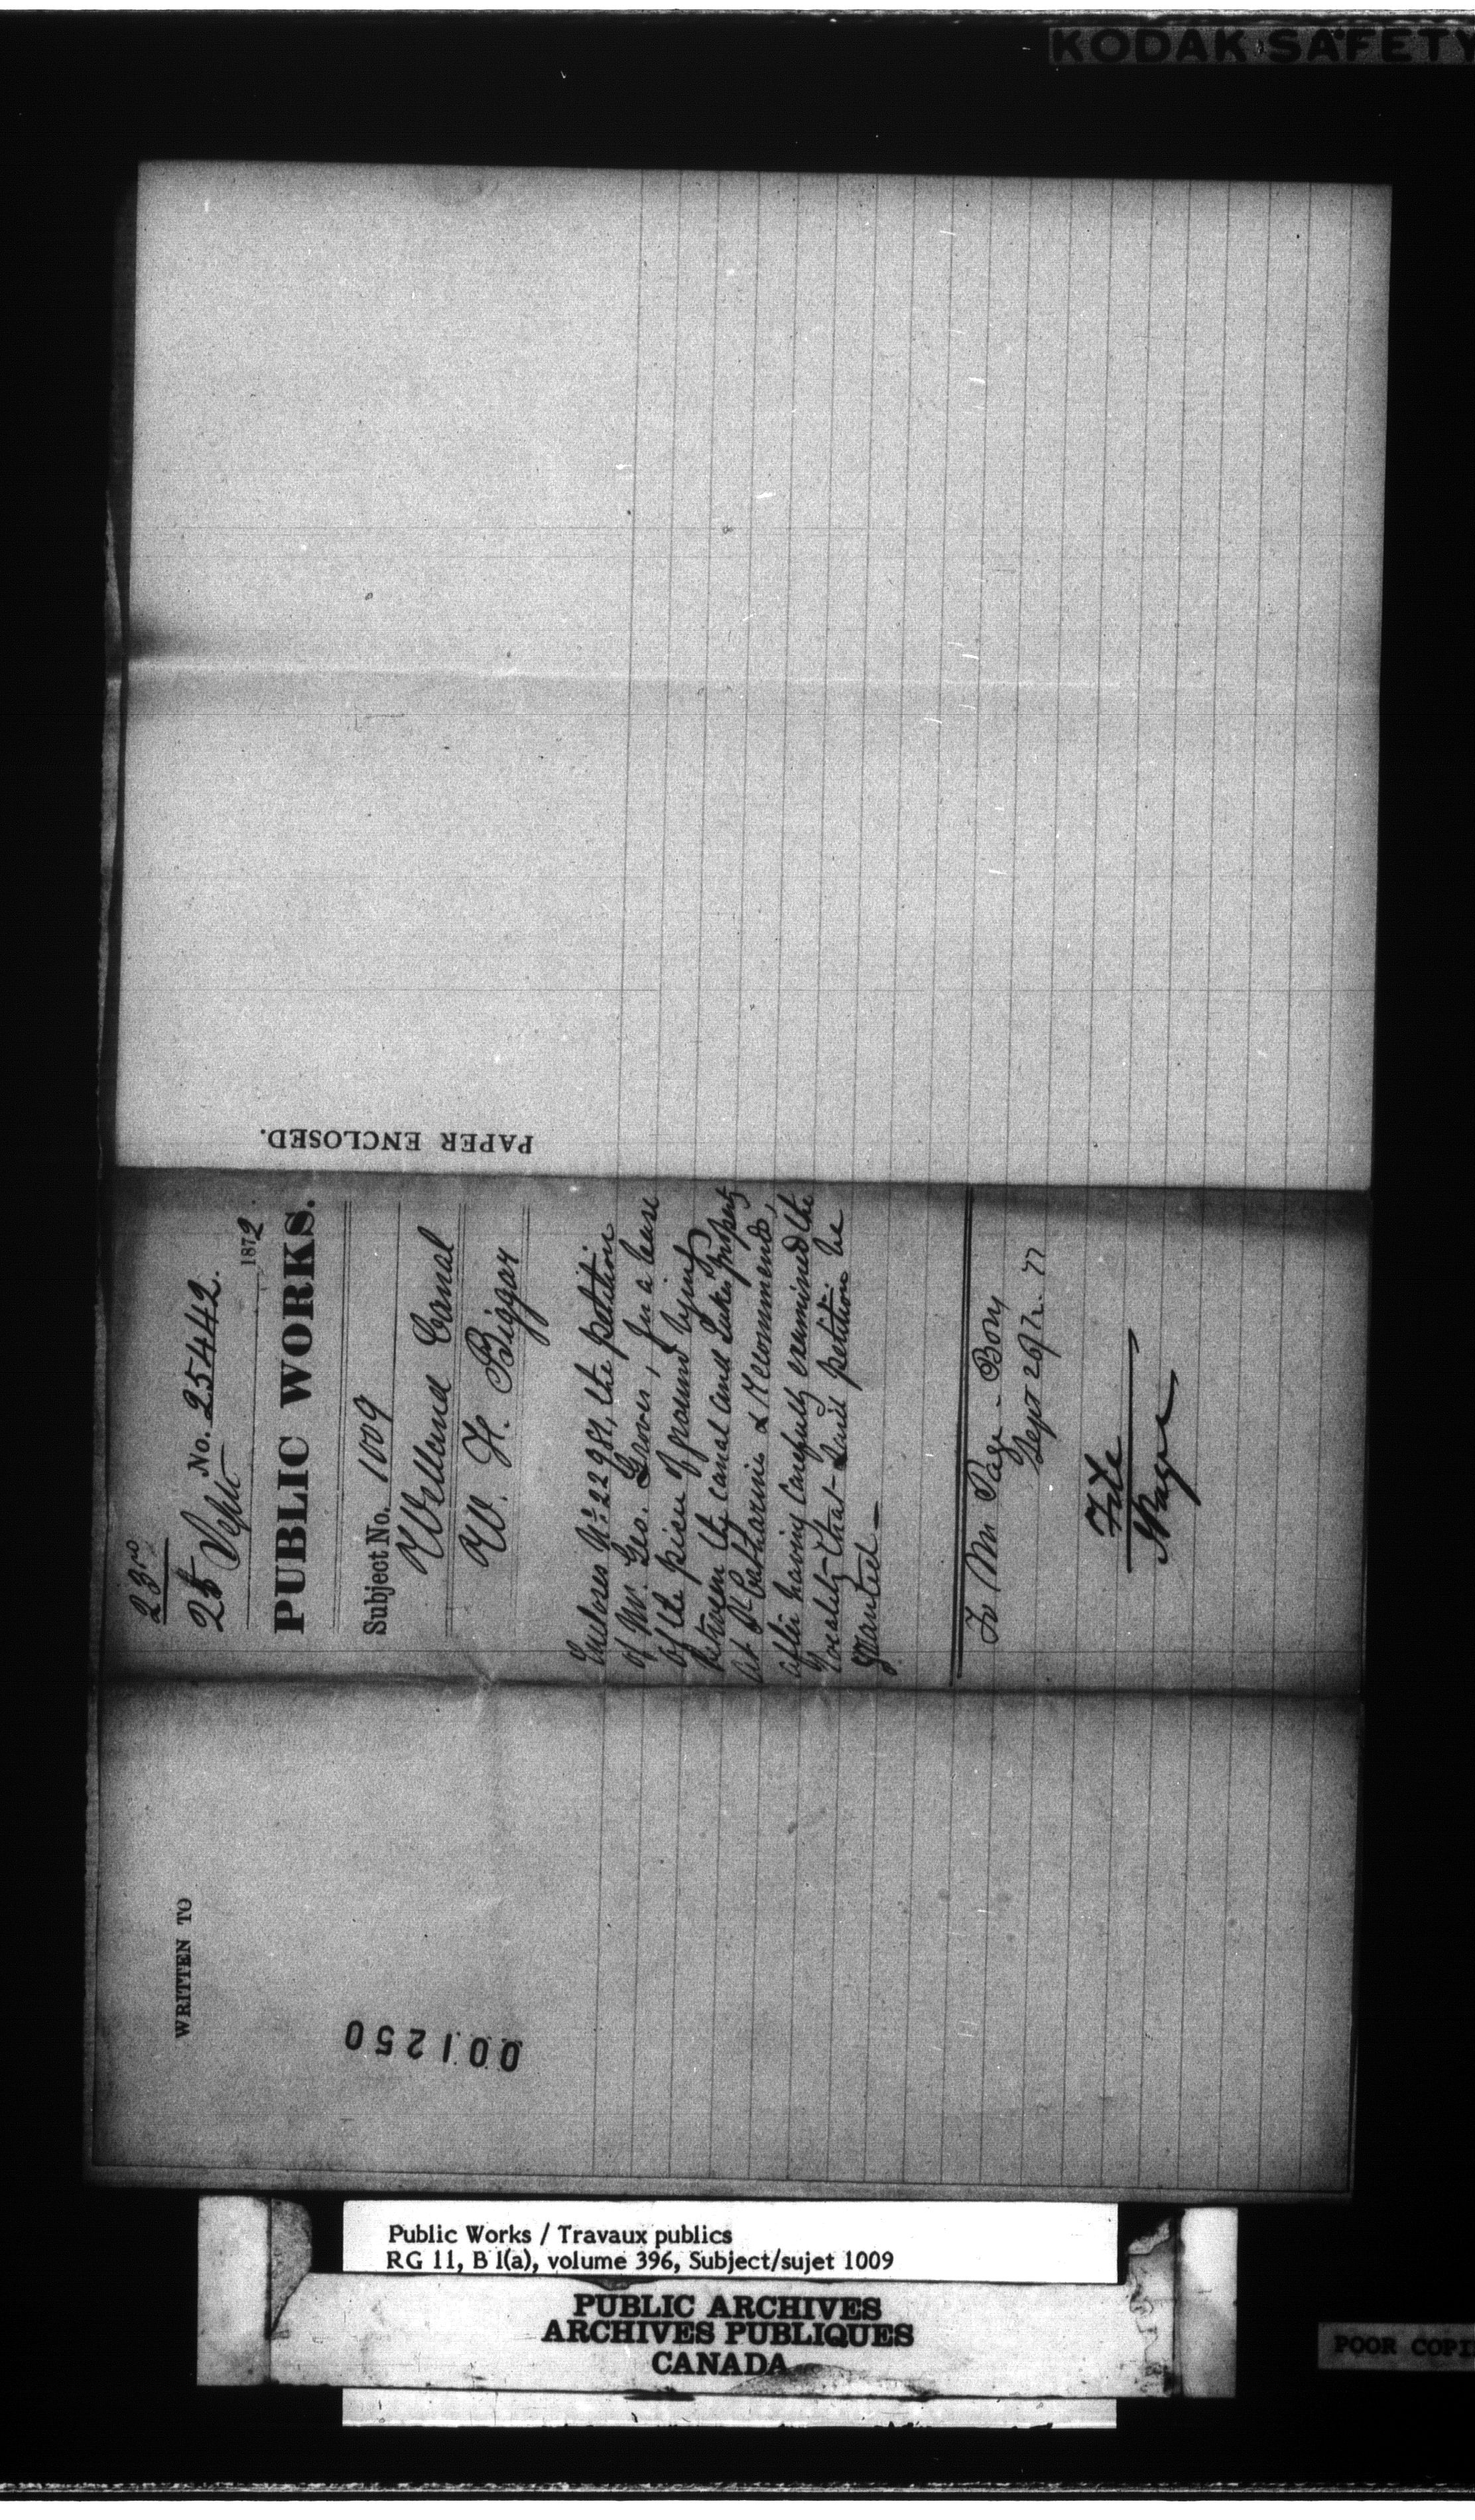 KODAK SAFETY
PAPER ENCLOSED.
23rd
25 Sept No. 25442.
1872.
PUBLIC WORKS.
Subject No. 1009
Welland Canal
W. H. Biggar
Encloses No. 22981, the petition
of Mr. Geo. Grover, for a lease
of the piece of ground lying
between the canal and Lukes property
at St Catharines & recommends,
after having carefully examined the
locality that said petition be
granted
To Mr Page - Bory
Sept 26/72.
File
Page
WRITTEN TO
001250
Public Works / Travaux publics
RG 11, B 1(a), volume 396, Subject/sujet 1009
PUBLIC ARCHIVES
ARCHIVES PUBLIQUES
CANADA
POOR COPI